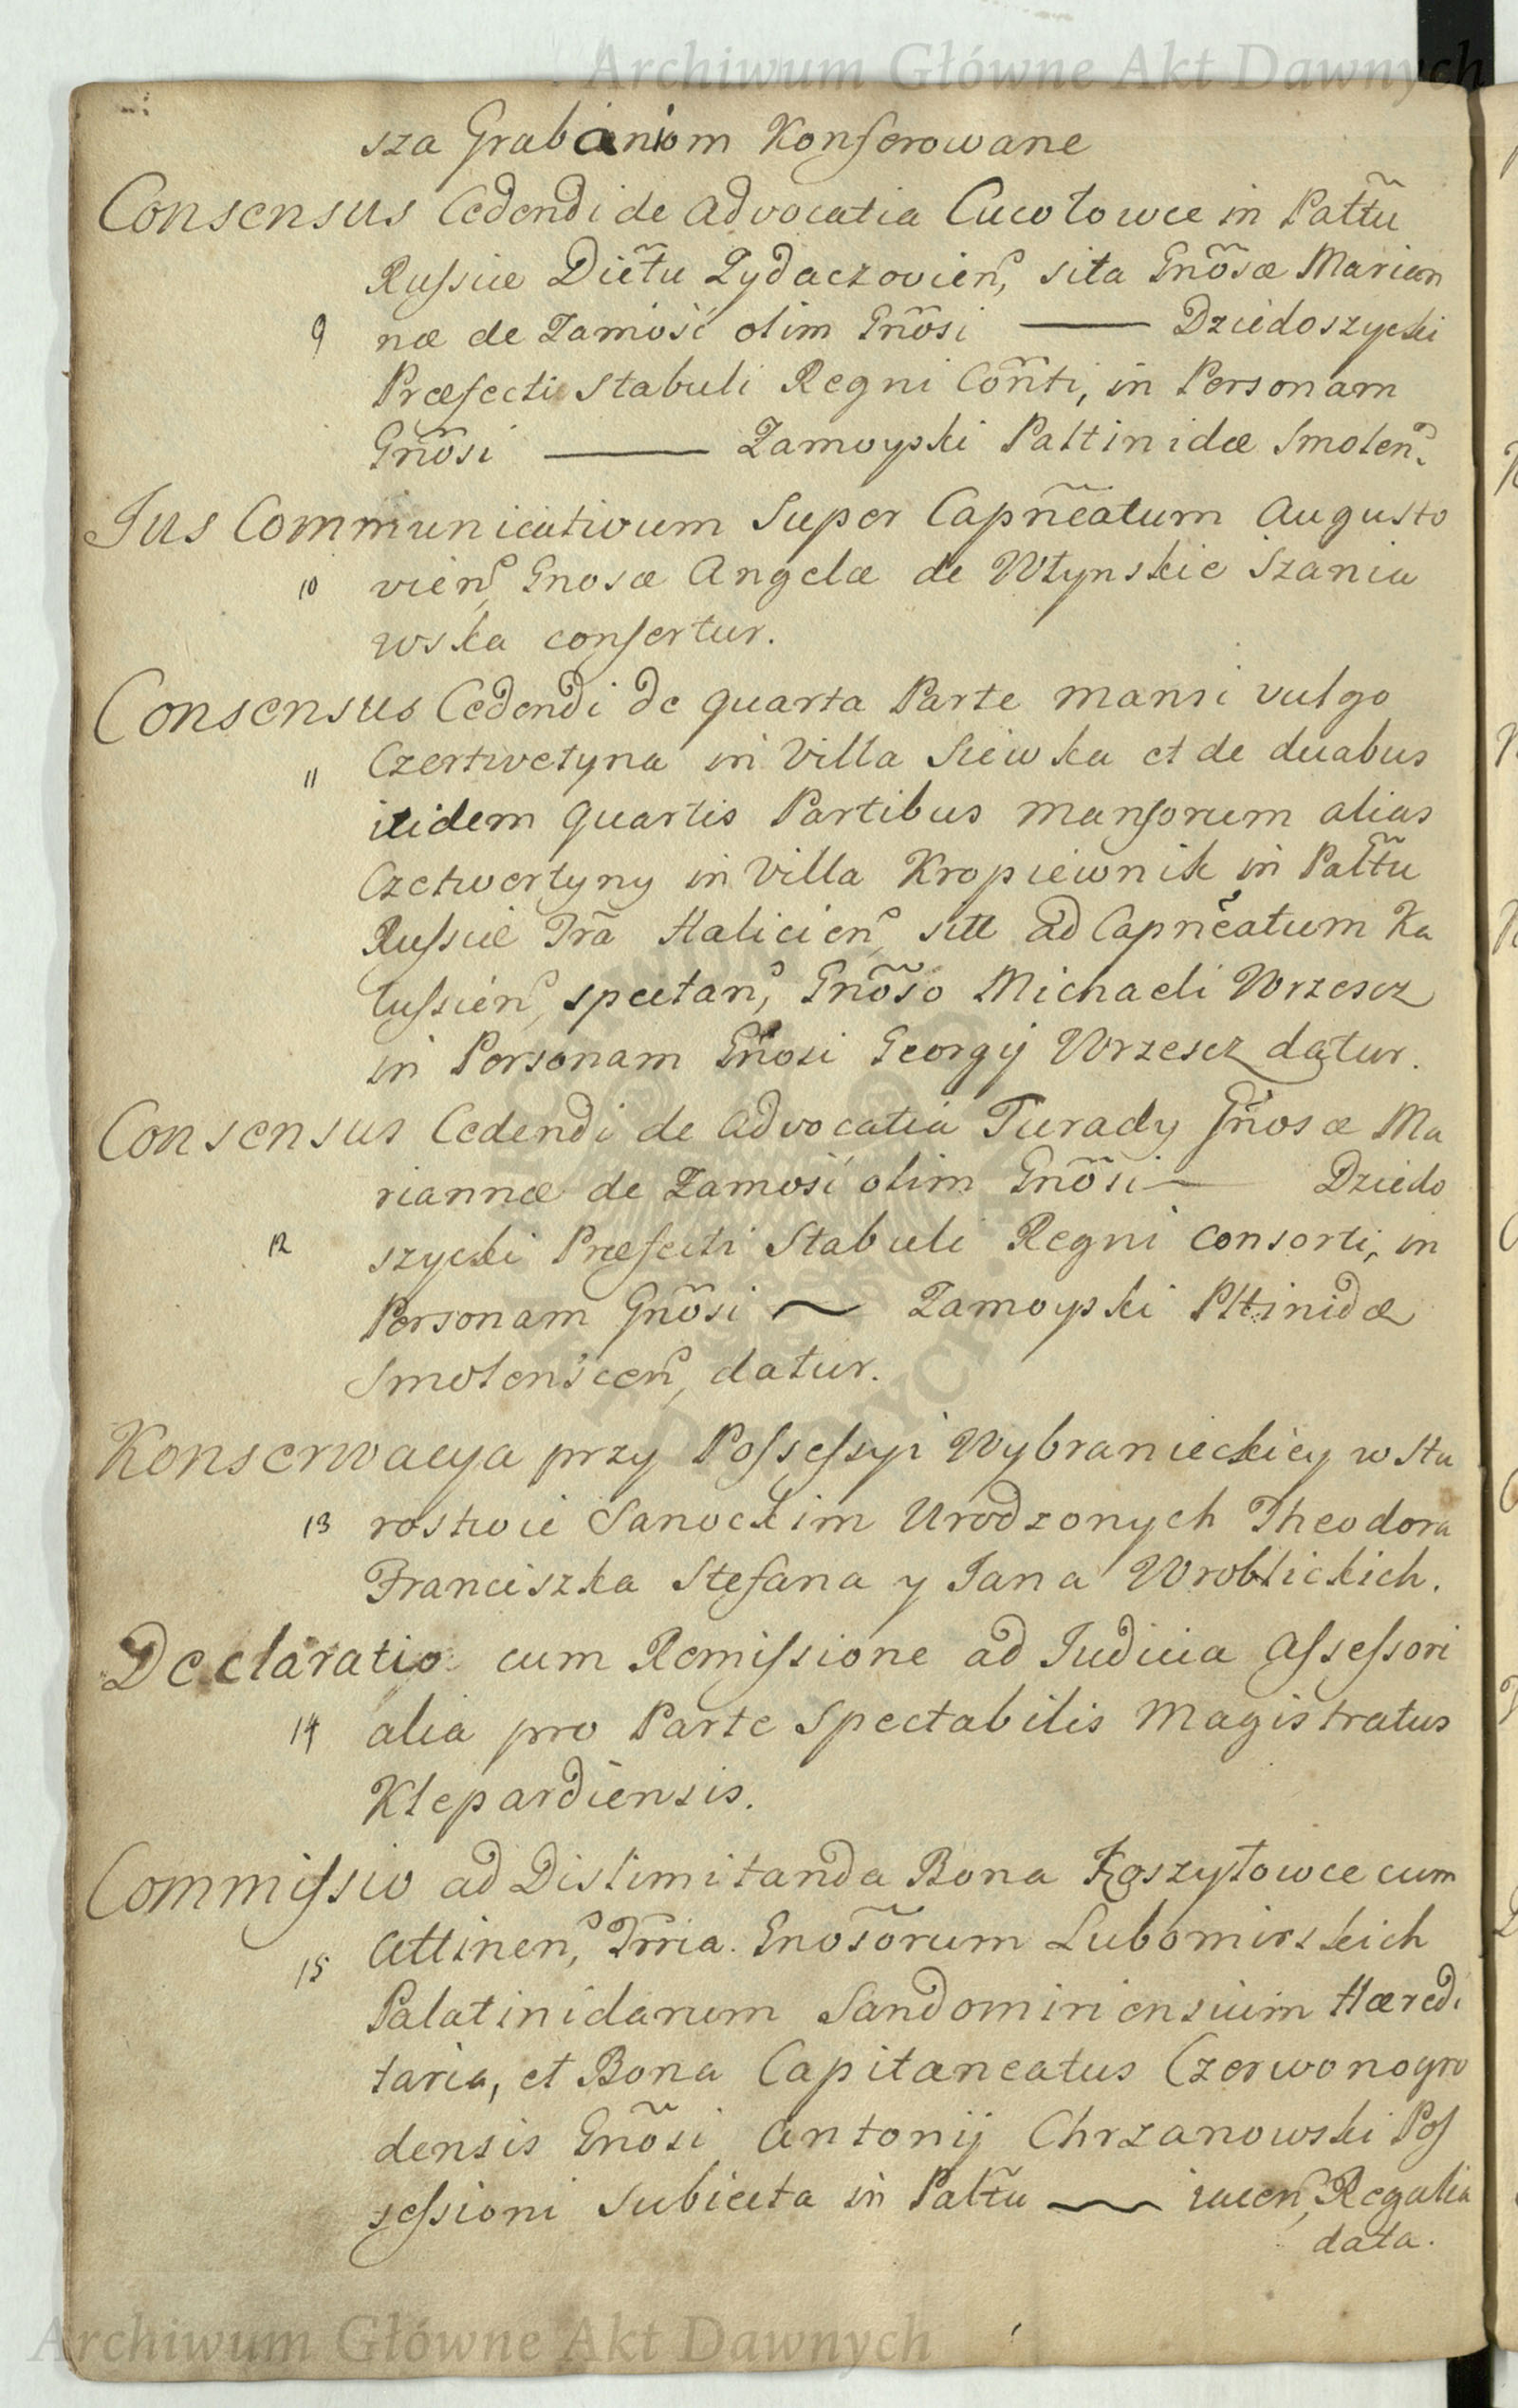 Archiwum Główne Akt Dawnych
sza Grabaniom Konferowane
Consensus Cedendi de Advocatia Cucołowce in Pałtũ
Russiæ Diẽtu Zydaczovien, sita Gnõsæ Marian
9 næ de Zamość olim Gnõsi —— Dziedoszycki
Præfecti Stabuli Regni Coñti, in Personam
Gnõsi —— Zamoyski Paltinidæ Smolen.
Jus Communicativum Super Capñeatum Augusto
10 vien, Gnosæ Angelæ de Włynskie Szania
wska confertur.
Consensus Cedendi de quarta Parte mansi vulgo
11 Czertwetyna in Villa Siewka et de duabus
itidem quartis Partibus mansorum alias
Czetwertyny in Villa Kropiewnik in Paltũ
Russiæ Trã Halicien, sitæ ad Capñeatum Ka
lussien, spectan, Gnõso Michaeli Wrzescz
in Personam Gñosi Georgij Wrzescz datur.
Consensus Cedendi de Advocatia Turady Gñosæ Ma
riannæ de Zamość olim Gnõsi — Dziedo
12 szycki Præfecti Stabuli Regni Consorti, in
Personam Gnõsi ~ Zamoyski Pltinidæ
Smolenscen, datur.
Konserwacya przy Possessyi Wybranieckiey w Sta
13 rostwie Sanockim Urodzonych Theodora
Franciszka Stefana y Jana Wroblickich.
Declaratio cum Remissione ad Judicia Assessori
14 alia pro Parte Spectabilis Magistratus
Klepardiensis.
Commissio ad Dislimitanda Bona Koszyłowce cum
15 Attinen, Trria. Gnosõrum Lubomirskich
Palatinidarum Sandomiriensium Hæredi
taria, et Bona Capitaneatus Czerwonogro
densis Gnõsi Antonij Chrzanowski Pos
sessioni Subiecta in Paltũ ~ iacen, Regalia
data.
Archiwum Główne Akt Dawnych